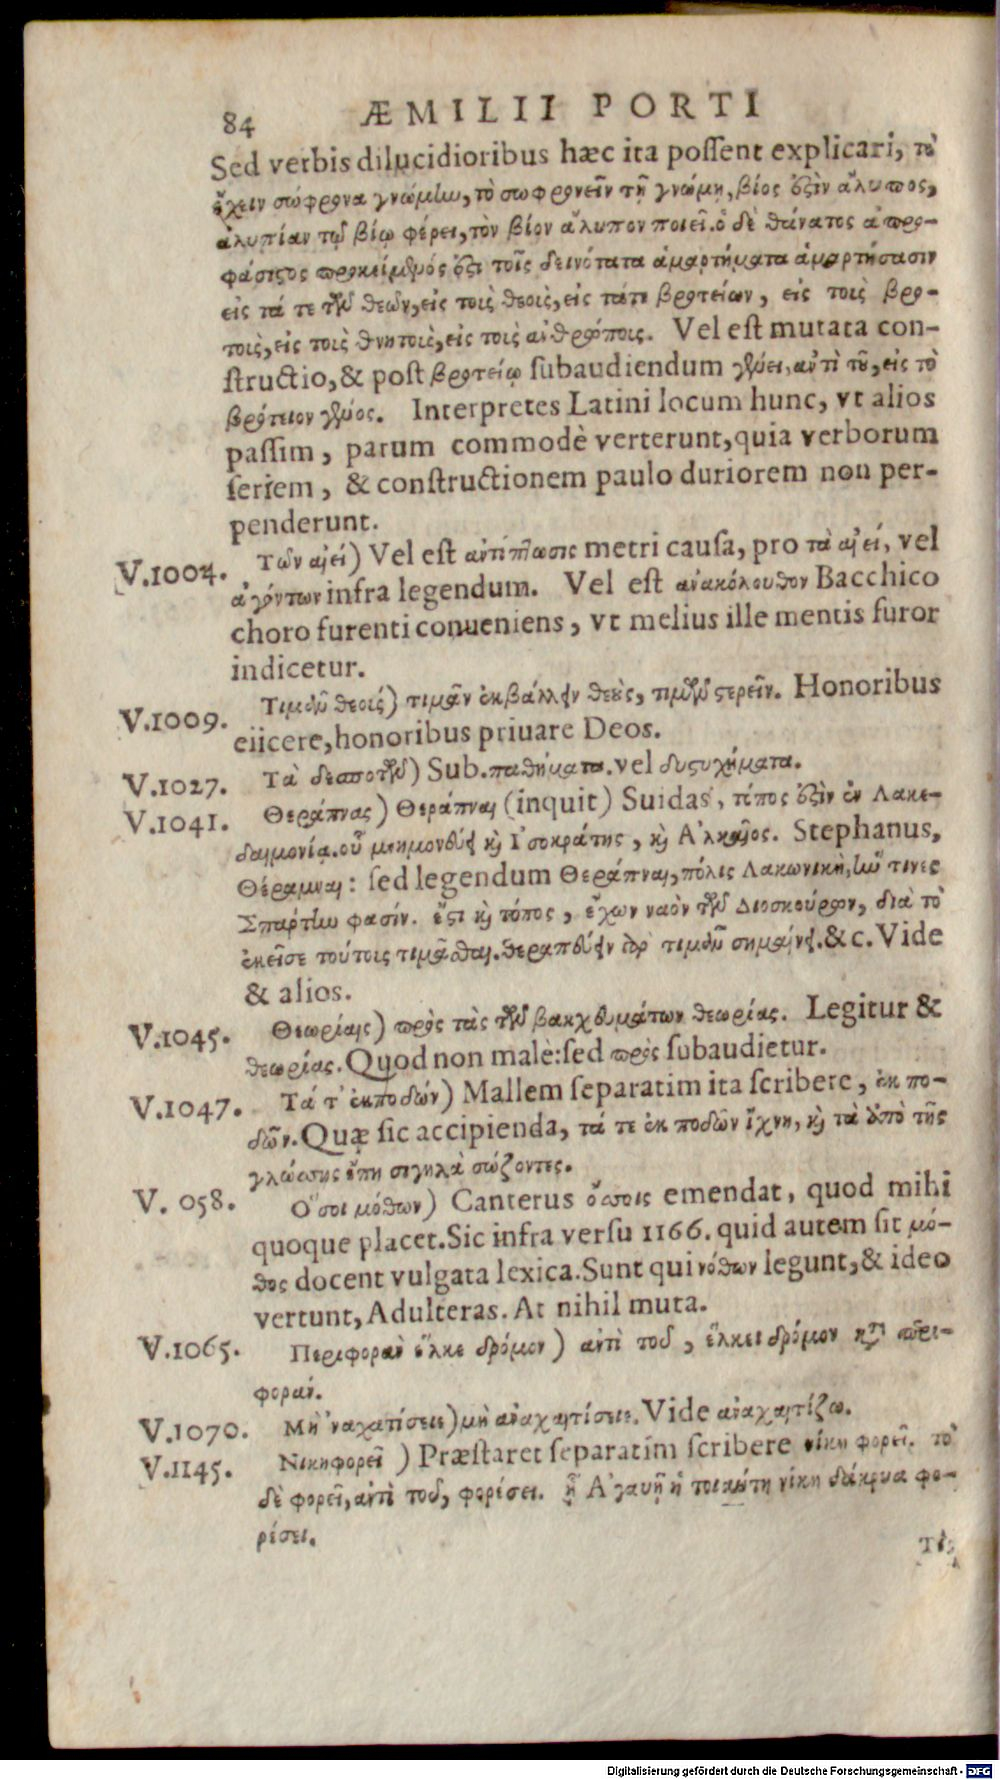 84 ÆMILII PORTI
Sed verbis dilucidioribus hæc ita possent explicari, τὸ
ἔχειν σώφρονα γνώμην, τὸ σωφρονεῖν τῇ γνώμῃ, βίος ἐστὶν ἄλυπος,
ἀλυπίαν τῷ βίῳ φέρει, τὸν βίον ἄλυπον ποιεῖ. ὁ δὲ θάνατος ἀπρο-
φάσιστος προκείμενός ἐστι τοῖς δεινότατα ἁμαρτήματα ἁμαρτήσασιν
εἰς τά τε τῶν θεῶν, εἰς τοὺς θεοὺς, εἰς τάτε βροτείων, εἰς τοὺς βρο-
τοὺς, εἰς τοὺς θνητοὺς, εἰς τοὺς ἀνθρώποις. Vel est mutata con-
structio, & post βροτείῳ subaudiendum γένει, ἀντὶ τοῦ, εἰς τὸ
βρότειον γένος. Interpretes Latini locum hunc, vt alios
passim, parum commodè verterunt, quia verborum
seriem, & constructionem paulo duriorem non per-
penderunt.
V.1004. Τῶν ἀεί) Vel est ἀντίπτωσις metri causa, pro τὰ ἀεί, vel
ἀγόντων infra legendum. Vel est ἀνακόλουθον Bacchico
choro furenti conueniens, vt melius ille mentis furor
indicetur.
V.1009. Τιμῶν θεοίς) τιμᾶν ἐκβάλλειν θεοὺς, τιμῶν στερεῖν. Honoribus
eiicere, honoribus priuare Deos.
V.1027. Τὰ δεσποτῶν) Sub. παθήματα. vel δυστυχήματα.
V.1041. Θεράπνας) Θεράπναι (inquit) Suidas, τόπος ἐστὶν ἐν Λακε-
δαιμονίᾳ. οὗ μνημονεύει καὶ Ἰσοκράτης, καὶ Ἀλκαῖος. Stephanus,
Θέραμναι: sed legendum Θεράπναι, πόλις Λακωνικὴ, ἣν τινες
Σπάρτην φασίν. ἔστι καὶ τόπος, ἔχων ναὸν τῶν Διοσκούρων, διὰ τὸ
ἐκεῖσε τούτοις τιμᾶσθαι. θεραπεύειν γὰρ τιμᾶν σημαίνει. &c. Vide
& alios.
V.1045. Θεωρίαις) πρὸς τὰς τῶν βακχευμάτων θεωρίας. Legitur &
θεωρίας. Quod non malè: sed πρὸς subaudietur.
V.1047. Τά τ' ἐκποδών) Mallem separatim ita scribere, ἐκ πο-
δῶν. Quæ sic accipienda, τά τε ἐκ ποδῶν ἴχνη, καὶ τὰ ἀπὸ τῆς
γλώσσης ἔπη σιγηλὰ σώζοντες.
V. 058. Ὅσοι μόθων) Canterus ὅσσοις emendat, quod mihi
quoque placet. Sic infra versu 1166. quid autem sit μό-
θος docent vulgata lexica. Sunt qui νόθων legunt, & ideo
vertunt, Adulteras. At nihil muta.
V.1065. Περιφορὰν ἕλκε δρόμον) ἀντὶ τοῦ, ἕλκει δρόμον κατὰ περι-
φοράν.
V.1070. Μὴ 'ναχαιτίσειε) μὴ ἀναχαιτίσειε. Vide ἀναχαιτίζω.
V.1145. Νικηφορεῖ) Præstaret separatim scribere νίκη φορεῖ. τὸ
δὲ φορεῖ, ἀντὶ τοῦ, φορίσει. ᾗ Ἀγαυῇ ἡ τοιαύτη νίκη δάκρυα φο-
ρίσει.
Digitalisierung gefördert durch die Deutsche Forschungsgemeinschaft - DFG